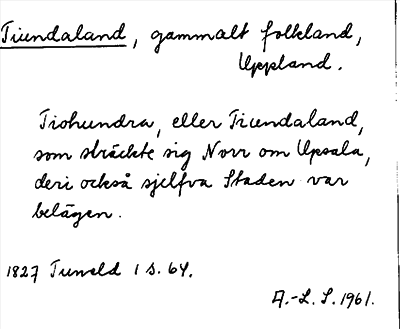 Tiundaland, gammalt folkland,
Uppland.
Tiohundra, eller Tiundaland,
som sträckte sig Norr om Upsala,
deri också sjelfva Staden var
belägen.
1827 Tuneld 1 s. 64.
A.-L. S. 1961.